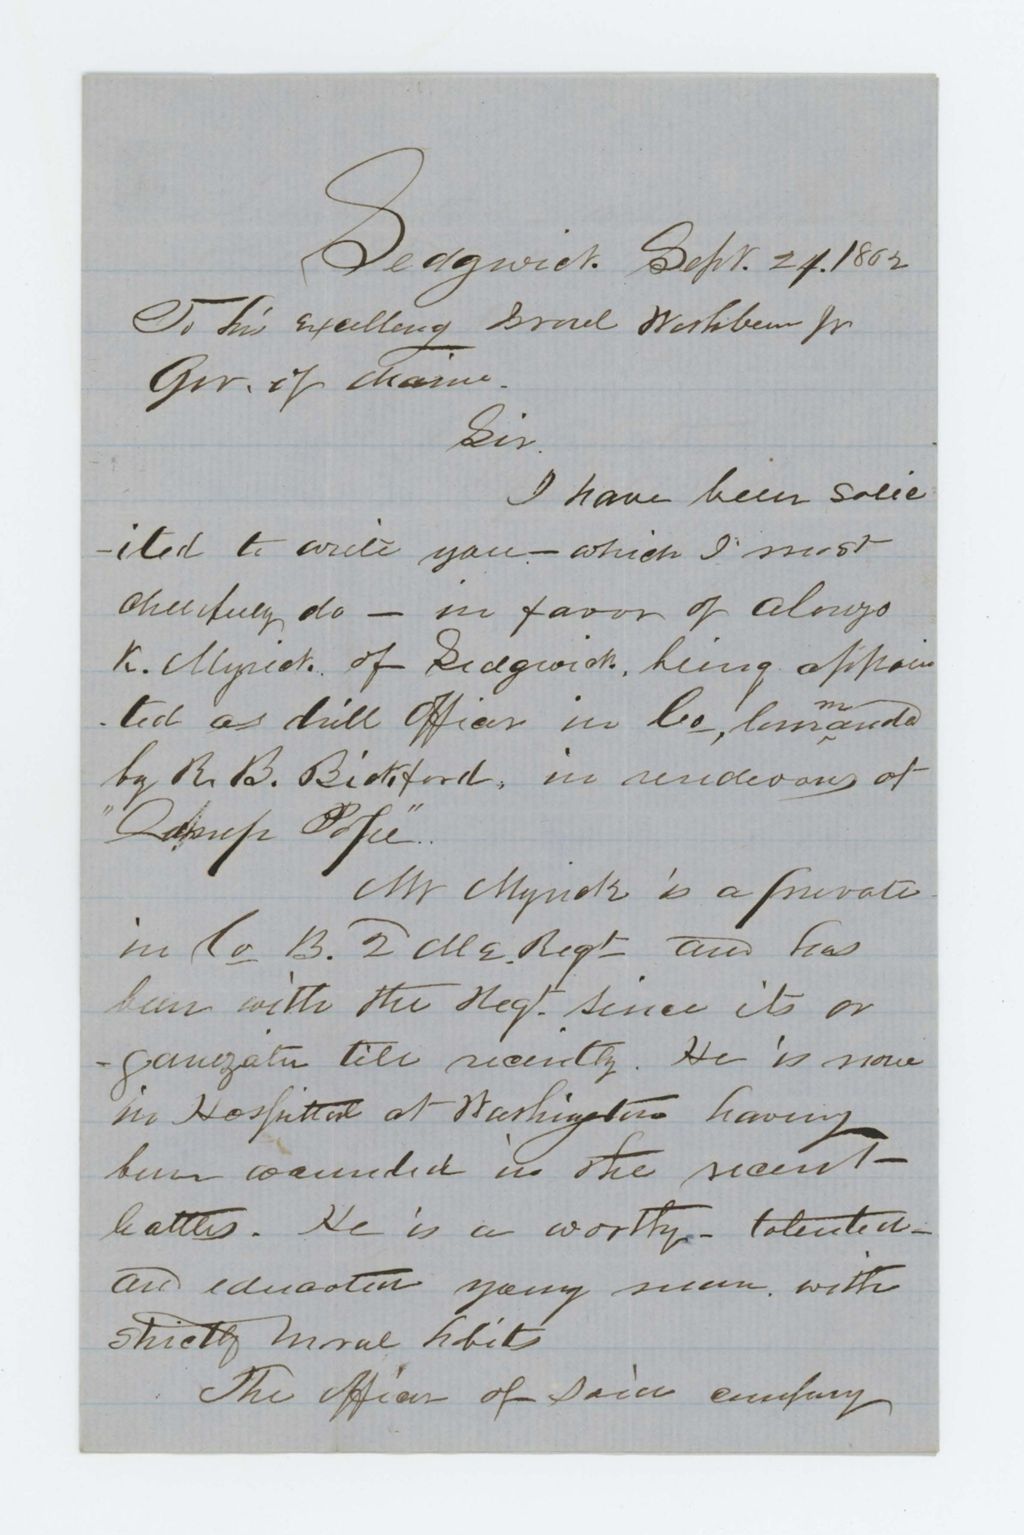 Sedgwick. Sept. 24. 1862
To his Excellency Israel Washburn Jr
Gov. of Maine.
Sir.
I have been solic
-ited to write you – which I most
cheerfully do – in favor of Alonzo
K. Myrick. of Sedgwick, being appoin
-ted as drill officer in Co, commanded
by R. B. Bickford, in rendevous at
"Camp Pope".
Mr Myrick is a private
in Co B. 2 Me. Regt and has
been with the Regt. since its or
-ganization till recently. He is now
in Hospital at Washington having
been wounded in the recent
battles. He is a worthy – talented –
and educated young man. with
strictly moral habits
The officer of said company